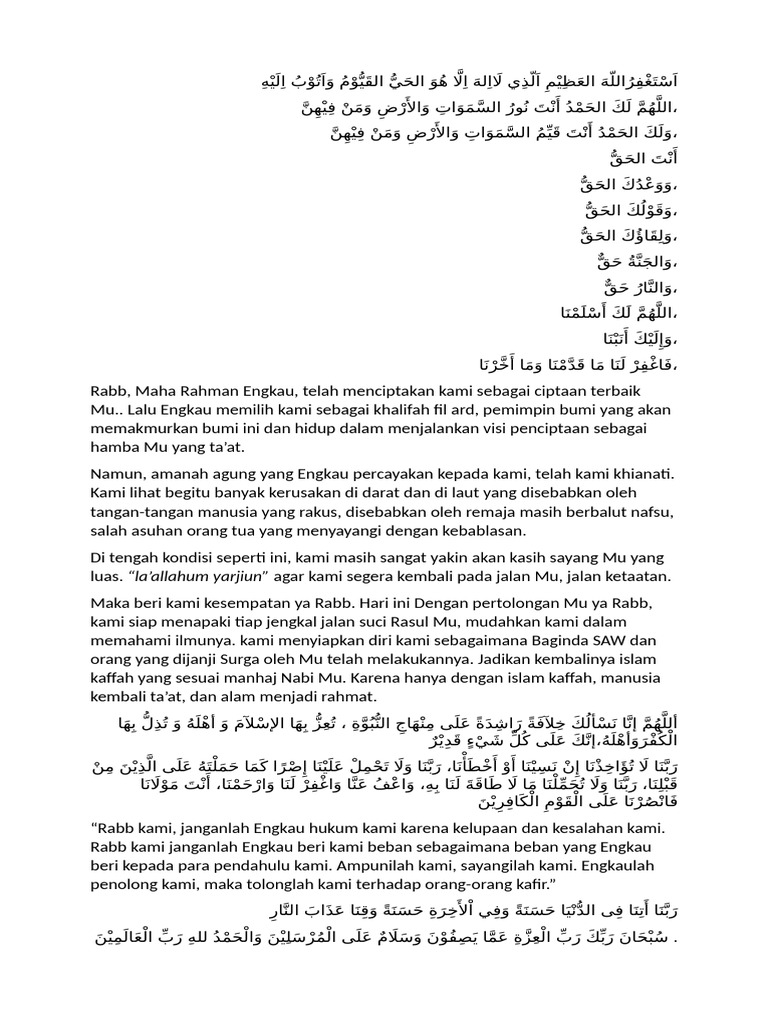 اَسْتَغْفِرُاللّهَ العَظِيْمِ اَلّذِي لَااِلهَ اِلَّا هُوَ الحَيُّ القَيُّوْمُ وَاَتُوْبُ اِلَيْهِ
اللَّهُمَّ لَكَ الحَمْدُ أَنْتَ نُورُ السَّمَوَاتِ وَالأَرْضِ وَمَنْ فِيْهِنَّ،
وَلَكَ الحَمْدُ أَنْتَ قَيِّمُ السَّمَوَاتِ وَالأَرْضِ وَمَنْ فِيْهِنَّ،
أَنْتَ الحَقُّ
وَوَعْدُكَ الحَقُّ،
وَقَوْلُكَ الحَقُّ،
وَلِقَاؤُكَ الحَقُّ،
وَالجَنَّةُ حَقٌّ،
وَالنَّارُ حَقٌّ،
اللَّهُمَّ لَكَ أَسْلَمْنَا،
وَإِلَيْكَ أَنَبْنَا،
فَاغْفِرْ لَنَا مَا قَدَّمْنَا وَمَا أَخَّرْنَا،
Rabb, Maha Rahman Engkau, telah menciptakan kami sebagai ciptaan terbaik
Mu.. Lalu Engkau memilih kami sebagai khalifah fil ard, pemimpin bumi yang akan
memakmurkan bumi ini dan hidup dalam menjalankan visi penciptaan sebagai
hamba Mu yang ta’at.
Namun, amanah agung yang Engkau percayakan kepada kami, telah kami khianati.
Kami lihat begitu banyak kerusakan di darat dan di laut yang disebabkan oleh
tangan-tangan manusia yang rakus, disebabkan oleh remaja masih berbalut nafsu,
salah asuhan orang tua yang menyayangi dengan kebablasan.
Di tengah kondisi seperti ini, kami masih sangat yakin akan kasih sayang Mu yang
luas. “la’allahum yarjiun” agar kami segera kembali pada jalan Mu, jalan ketaatan.
Maka beri kami kesempatan ya Rabb. Hari ini Dengan pertolongan Mu ya Rabb,
kami siap menapaki tiap jengkal jalan suci Rasul Mu, mudahkan kami dalam
memahami ilmunya. kami menyiapkan diri kami sebagaimana Baginda SAW dan
orang yang dijanji Surga oleh Mu telah melakukannya. Jadikan kembalinya islam
kaffah yang sesuai manhaj Nabi Mu. Karena hanya dengan islam kaffah, manusia
kembali ta’at, dan alam menjadi rahmat.
أَللَّهُمَّ إِنَّا نَسْأَلُكَ خِلاَفَةً رَاشِدَةً عَلَى مِنْهَاجِ النُّبُوَّةِ ، تُعِزُّ بِهَا الإِسْلاَمَ وَ أَهْلَهُ وَ تُذِلُّ بِهَا
الْكُفْرَوَأَهْلَهُ،إِنَّكَ عَلَى كُلِّ شَيْءٍ قَدِيْرٌ
رَبَّنَا لَا تُؤَاخِذْنَا إِنْ نَسِيْنَا أَوْ أَخْطَأْنَا، رَبَّنَا وَلَا تَحْمِلْ عَلَيْنَا إِصْرًا كَمَا حَمَلْتَهُ عَلَى الَّذِيْنَ مِنْ
قَبْلِنَا، رَبَّنَا وَلَا تُحَمِّلْنَا مَا لَا طَاقَةَ لَنَا بِهِ، وَاعْفُ عَنَّا وَاغْفِرْ لَنَا وَارْحَمْنَا، أَنْتَ مَوْلَانَا
فَانْصُرْنَا عَلَى الْقَوْمِ الْكَافِرِيْنَ
“Rabb kami, janganlah Engkau hukum kami karena kelupaan dan kesalahan kami.
Rabb kami janganlah Engkau beri kami beban sebagaimana beban yang Engkau
beri kepada para pendahulu kami. Ampunilah kami, sayangilah kami. Engkaulah
penolong kami, maka tolonglah kami terhadap orang-orang kafir.”
رَبَّنَا أَتِنَا فِى الدُّنْيَا حَسَنَةً وَفِي اْلأَخِرَةِ حَسَنَةً وَقِنَا عَذَابَ النَّارِ
. سُبْحَانَ رَبِّكَ رَبِّ الْعِزَّةِ عَمَّا يَصِفُوْنَ وَسَلَامٌ عَلَى الْمُرْسَلِيْنَ وَالْحَمْدُ للهِ رَبِّ الْعَالَمِيْنَ